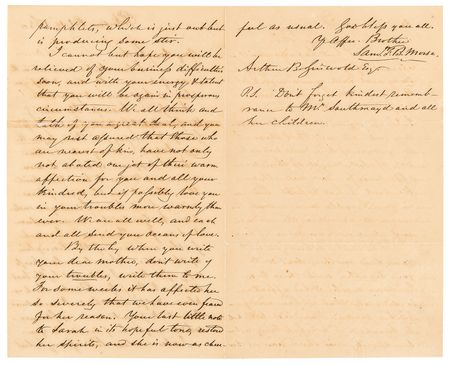 pamphlets, which is just out but
is producing some stir.
I cannot but hope you will be
relieved of your business difficulties
soon, and with your energy & talent
that you will be again in prosperous
circumstances. We all think and
talk of you a great deal, and you
may rest assured that those who
are nearest of kin, have not only
not abated one jot of their warm
affection for you and all your
kindred, but if possible, love you
in your troubles more warmly than
ever. We are all well, and each
and all send you oceans of love.
By the by, when you write
your dear mother, don't write of
your troubles, write them to me.
For some weeks it has affected her
so severely that we have even feared
for her reason. Your last little note
to Sarah in its hopeful tone, restored
her spirits, and she is now as cheer-
ful as usual. God bless you all.
Yr Affec. Brother
Saml. F. B. Morse.
Arthur B. Griswold Esqr
P.S. Don't forget kindest remem-
brance to Mrs Southmayd and all
her children.